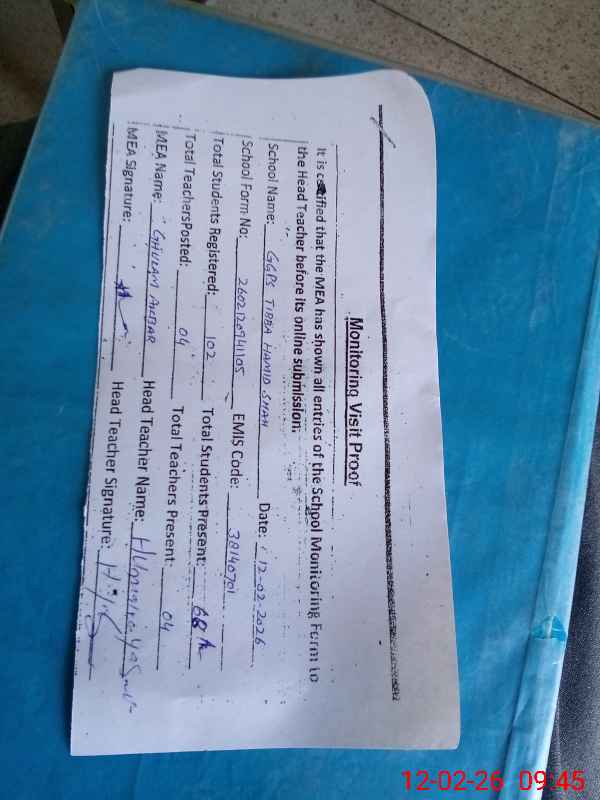 Monitoring Visit Proof
It is certified that the MEA has shown all entries of the School Monitoring Form to
the Head Teacher before its online submission.
School Name: GGPS TIBBA HAMID SHAH Date: 12-02-2026
School Form No: 2602120941105 EMIS Code: 38140701
Total Students Registered: 102 Total Students Present: 68
Total TeachersPosted: 04 Total Teachers Present: 04
MEA Name: GHULAM AKBAR Head Teacher Name:
MEA Signature: Head Teacher Signature:
12-02-26 09:45